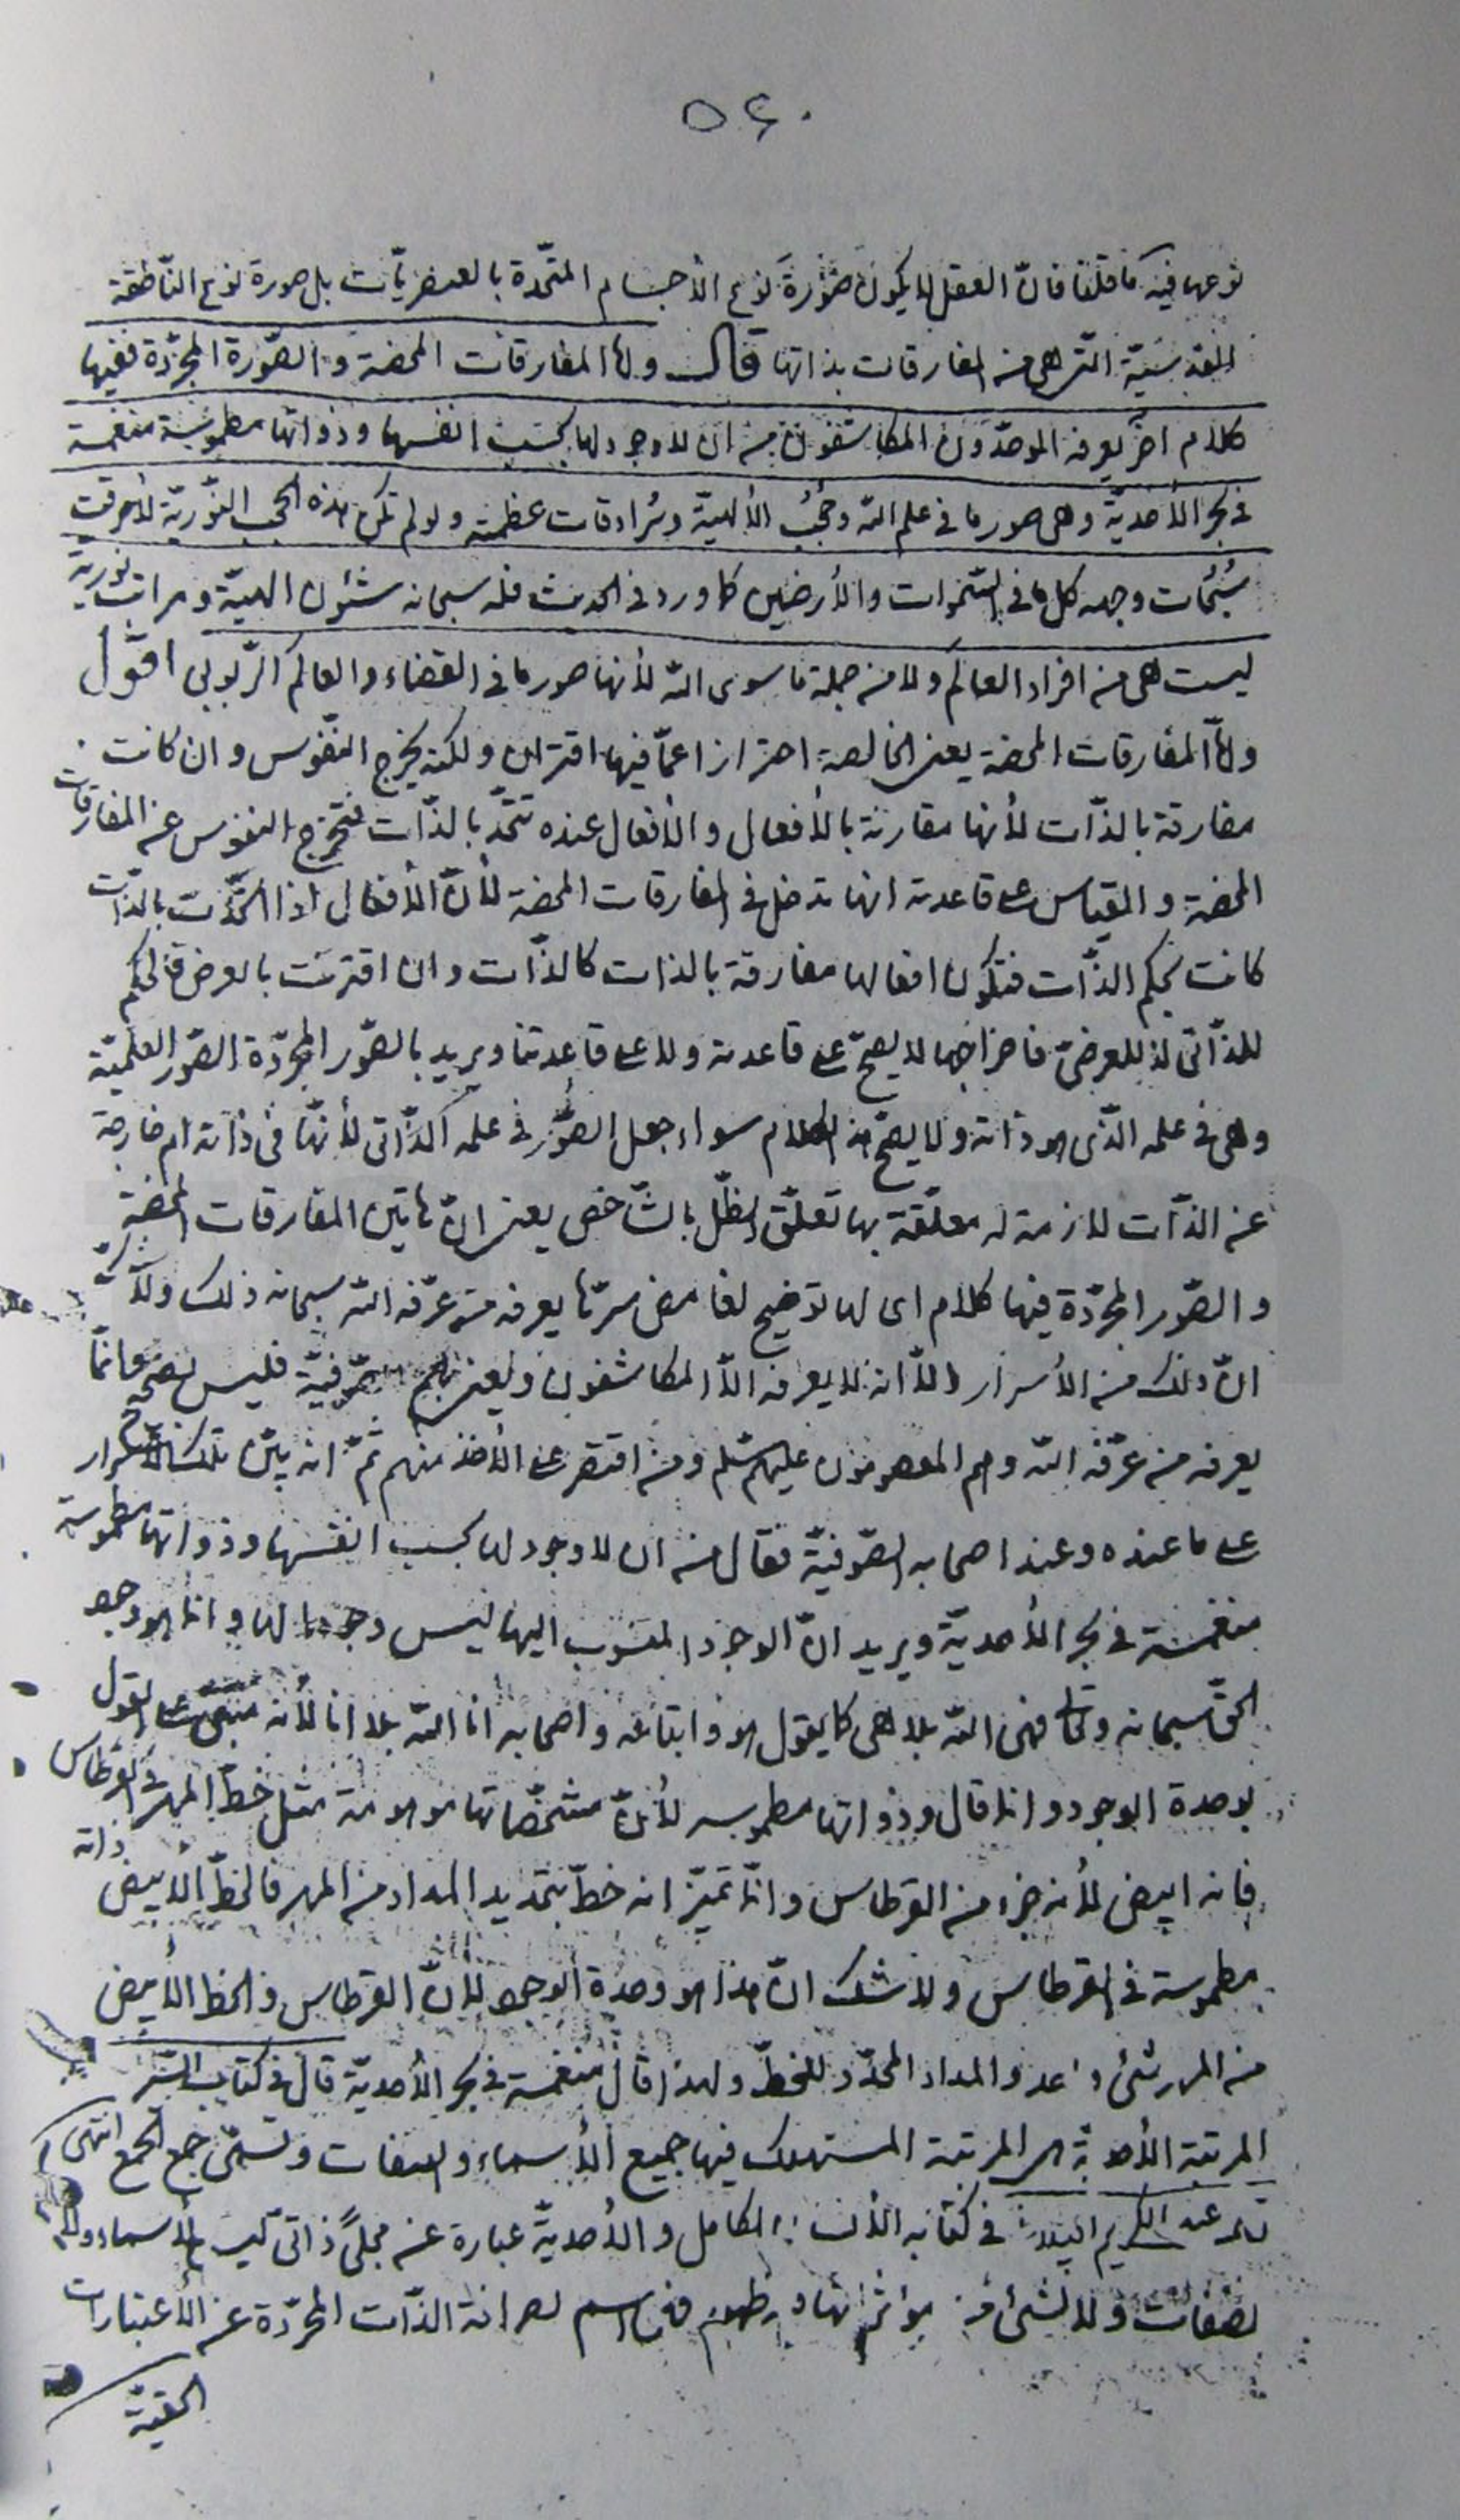 ٥٤٠
نوعها فيه كما قلنا فانّ العقل لا يكون صورةَ لنوع الأجسام المتّحدة بالعنصريّات بل صورة لنوع النّاطقة
القدسيّة الّتى هى من المفارقات بذاتها قال وامّا المفارقات المحضة والصّورة المجرّدة ففيها
كلام اخر يعرفه الموحّدون المكاشفون من ان لا وجود لها بحسب انفسها وذواتها مطموسة منغمسة
فى بحر الأحديّة وهى صور ما فى علم اللّه وحجُبُ الألهيّة وسُرادقات عظمته ولو لم تكن هذه الحجب النّوريّة لأحرقت
سُبُحات وجهه كل ما فى السّموات والأرضين كما ورد فى الحديث فله سبحانه شئون الهيّة ومراتب نوريّة
ليست هى من افراد العالم ولا من جملة ما سوى اللّه لأنها صور ما فى القضاء والعالم الرّبوبى اقول
وامّا المفارقات المحضة يعنى الخالصة احترازا عمّا فيها اقتران ولكنه يخرج النّفوس وان كانت
مفارقة بالذّات لأنها مقارنة بالأفعال والأفعال عنده تتّحد بالذّات فتخرج النفوس عن المفارقات
المحضة والقياس على قاعدته انها تدخل فى المفارقات المحضة لأنّ الأفعال اذا اتّحدت بالذّات
كانت بحكم الذّات فتكون افعالها مفارقة بالذات كالذّات وان اقترنت بالعرض فالحكم
للذّاتى لا للعرضىّ فاخراجها لا يصحّ على قاعدته ولا على قاعدتنا ويريد بالصّور المجرّدة الصّور العلميّة
وهى فى علمه الّذى هو ذاته ولا يصحّ هذا الكلام سواء جعل الصّور فى علمه الذّاتى لأنهّا فى ذاته ام خارجة
عن الذّات لازمة له معلّقة بها تعلّق الظّلّ بالشّاخص يعنى انّ هاتين المفارقات المحضة
والصّور المجرّدة فيها كلام اى لها توضيح لغامض سرّها يعرفه من عرّفه اللّه سبحانه ذلك ولا شكّ
انّ ذلك من الأسرار الّا انه لا يعرفه الّا المكاشفون ويعنى بهم الصّوفيّة فليس بصحيح وانمّا
يعرفه من عرّفه اللّه وهم المعصومون عليهم السّلم ومن اقتصر على الأخذ منهم ثمّ انه بيّن تلك الأسرار
على ما عنده وعند اصحابه الصّوفيّة فقال من ان لا وجود لها بحسب انفسها وذواتها مطموسة
منغمسة فى بحر الأحديّة ويريد انّ الوجود المنسوب اليها ليس وجودا لها وانما هو وجود
الحقّ سبحانه وتعالى فهى اللّه بلا هى كما يقول هو واتباعه واصحابه انا اللّه بلا انا لأنه مبنىّ على القول
بوحدة الوجود وانما قال وذواتها مطموسة لأنّ مشخّصاتها موهومة مثل خطّ المهر فى القرطاس
فانه ابيض لأنه جزء من القرطاس وانّما تميّز انه خطّ بتحديد المداد من المهر فالخطّ الأبيض ذاته
مطموسة فى القرطاس ولا شك انّ هذا هو وحدة الوجود لأنّ القرطاس والخط الأبيض
من المهر شئ واحد والمداد المحدّد للخطّ ولهذا قال منغمسة فى بحر الأحديّة قال فى كتاب السّر
المرتبة الأحديّة هى المرتبة المستهلك فيها جميع الأسماء والصفات وتسمّى جمع الجمع انتهى
عبد الكريم فى كتابه الأنسان الكامل والأحديّة عبارة عن مجلىً ذاتى ليس للأسماء ولا
للصّفات ولا لشئ من مؤثّراتها ظهور فهى اسم لصرافة الذّات المجرّدة عن الأعتبارات
الحقيّة